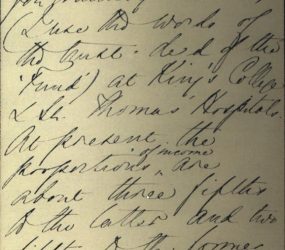 (I use the words of
the Trust-deed of the
'Fund') at King's College
& St. Thomas' Hospitals.
At present the
proportions of income are
about three fifths
to the latter and two
fifths to the former